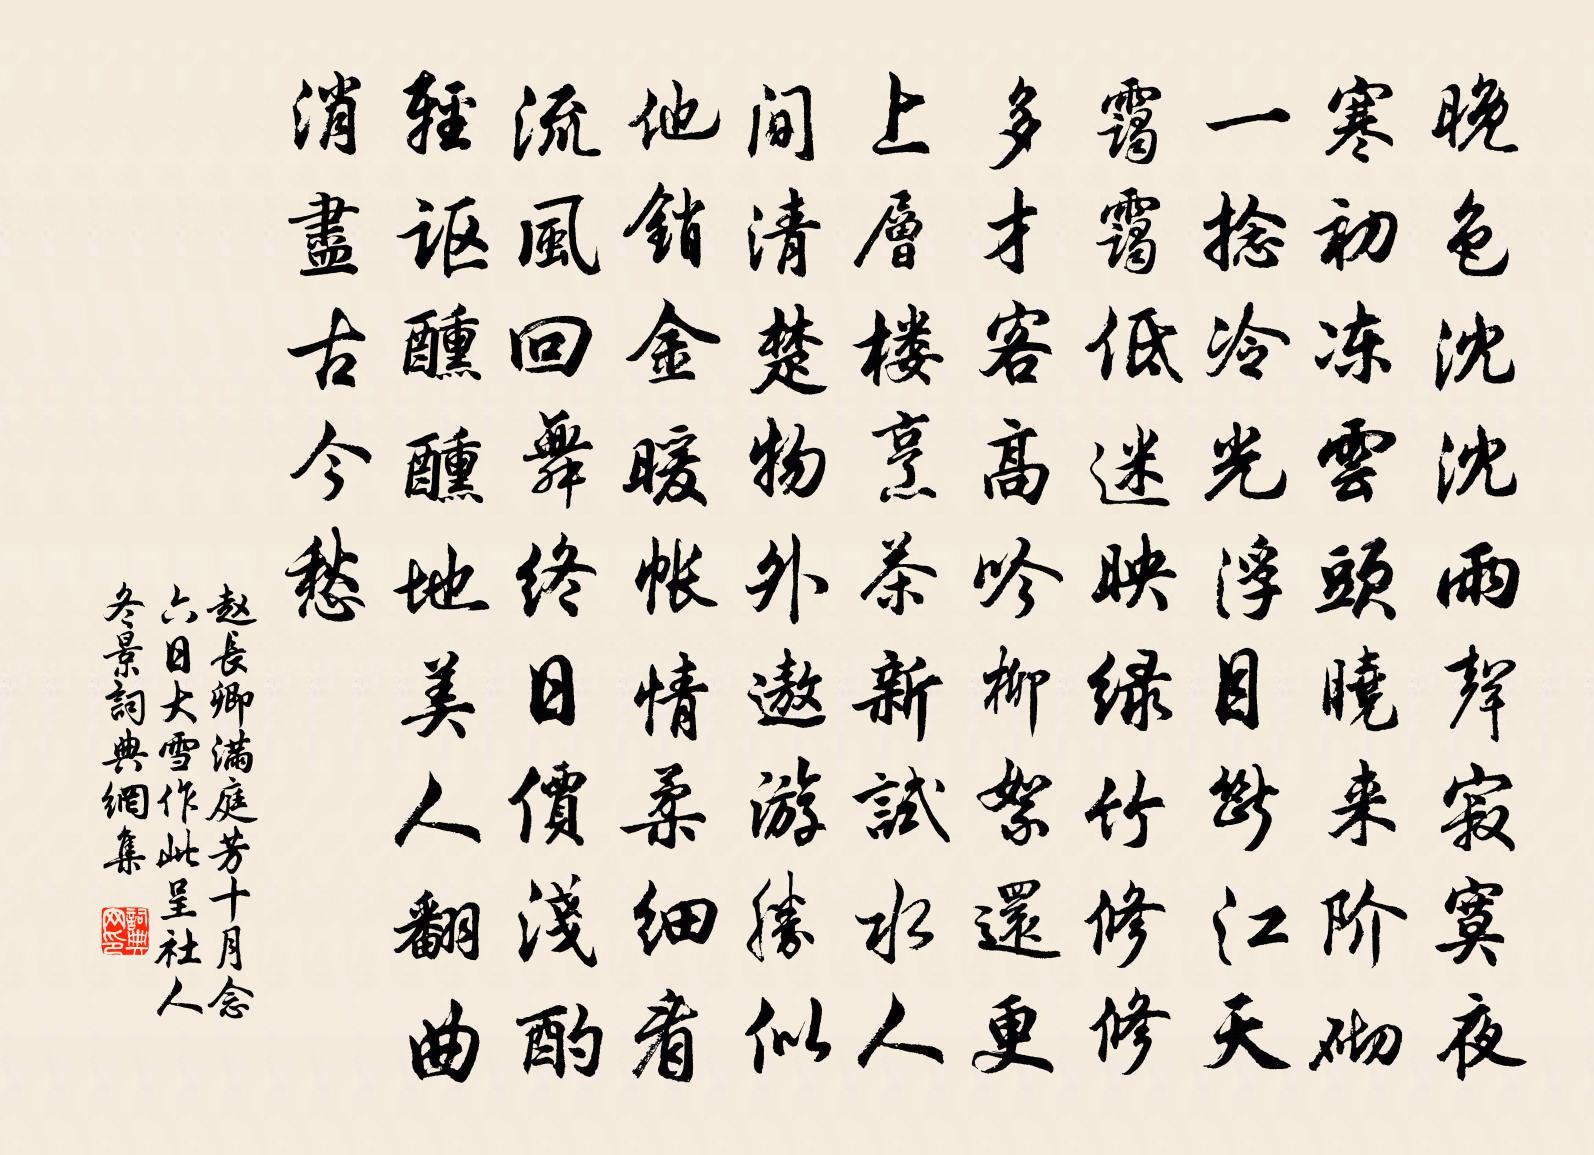 晚色沈沈雨聲寂寞夜
寒初冻雲頭曉来阶砌
一捻冷光浮目斷江天
靄靄低迷映緑竹修修
多才客高吟柳絮還更
上層楼烹茶新試水人
间清楚物外遨游勝似
他銷金暖帐情柔细看
流風回舞终日價淺酌
輕讴醺醺地美人翻曲
消盡古今愁
赵長卿满庭芳十月念
六日大雪作此呈社人
冬景詞典網集
詞典网印